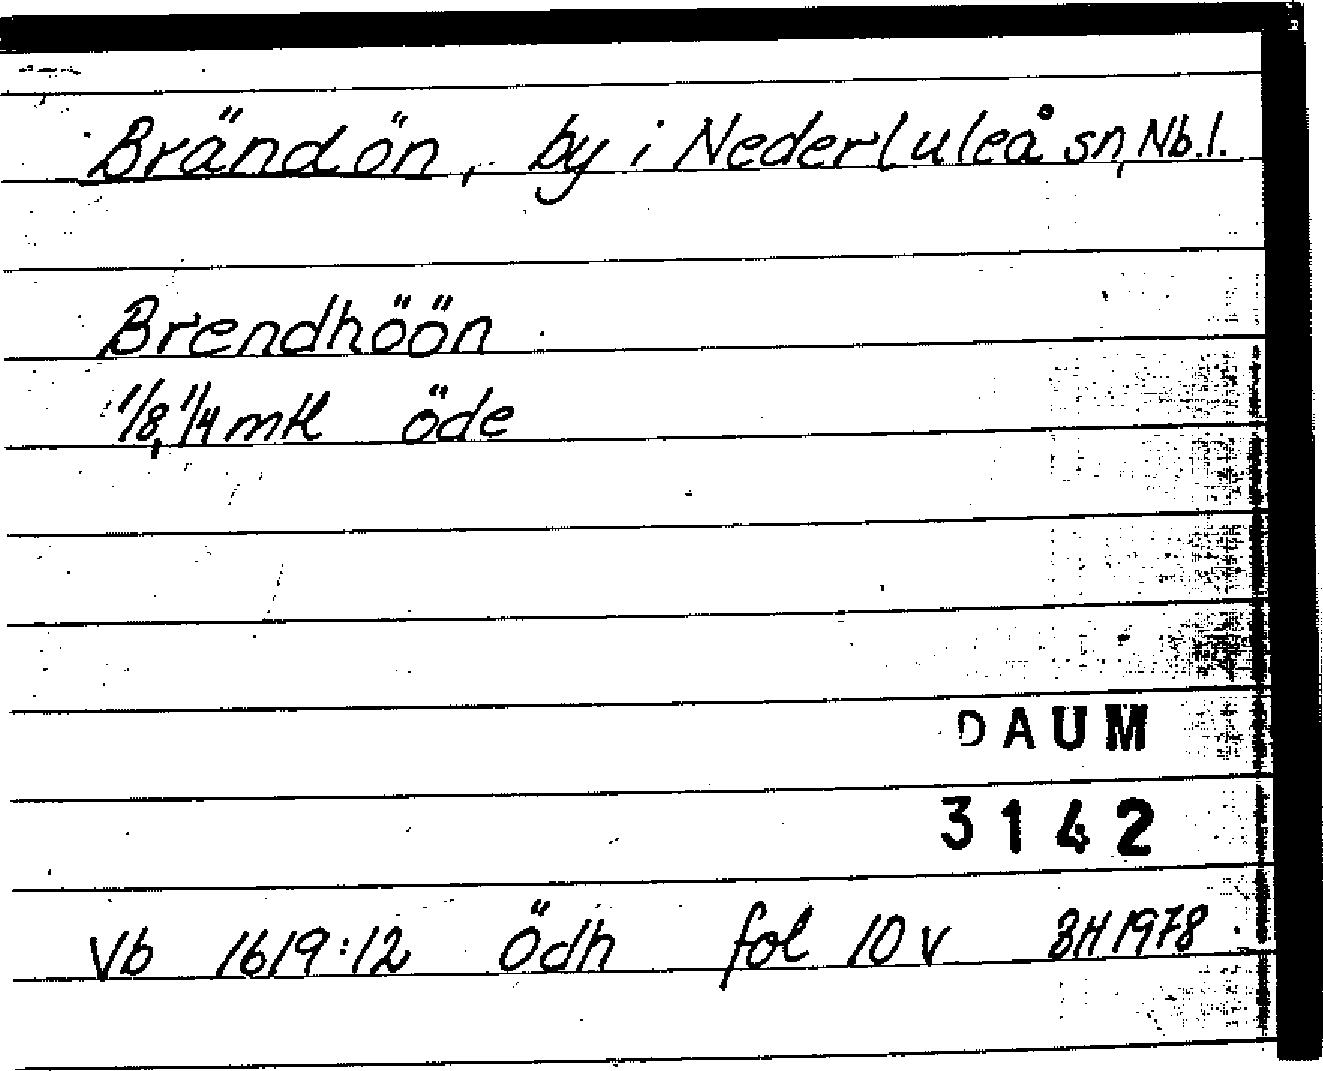 Brändön, by i Nederluleå sn, Nb.l.
Brendhöön
1/8, 1/4 mtl öde
DAUM
3142
Vb 1619:12 Ödh fol 10 v BH 1978